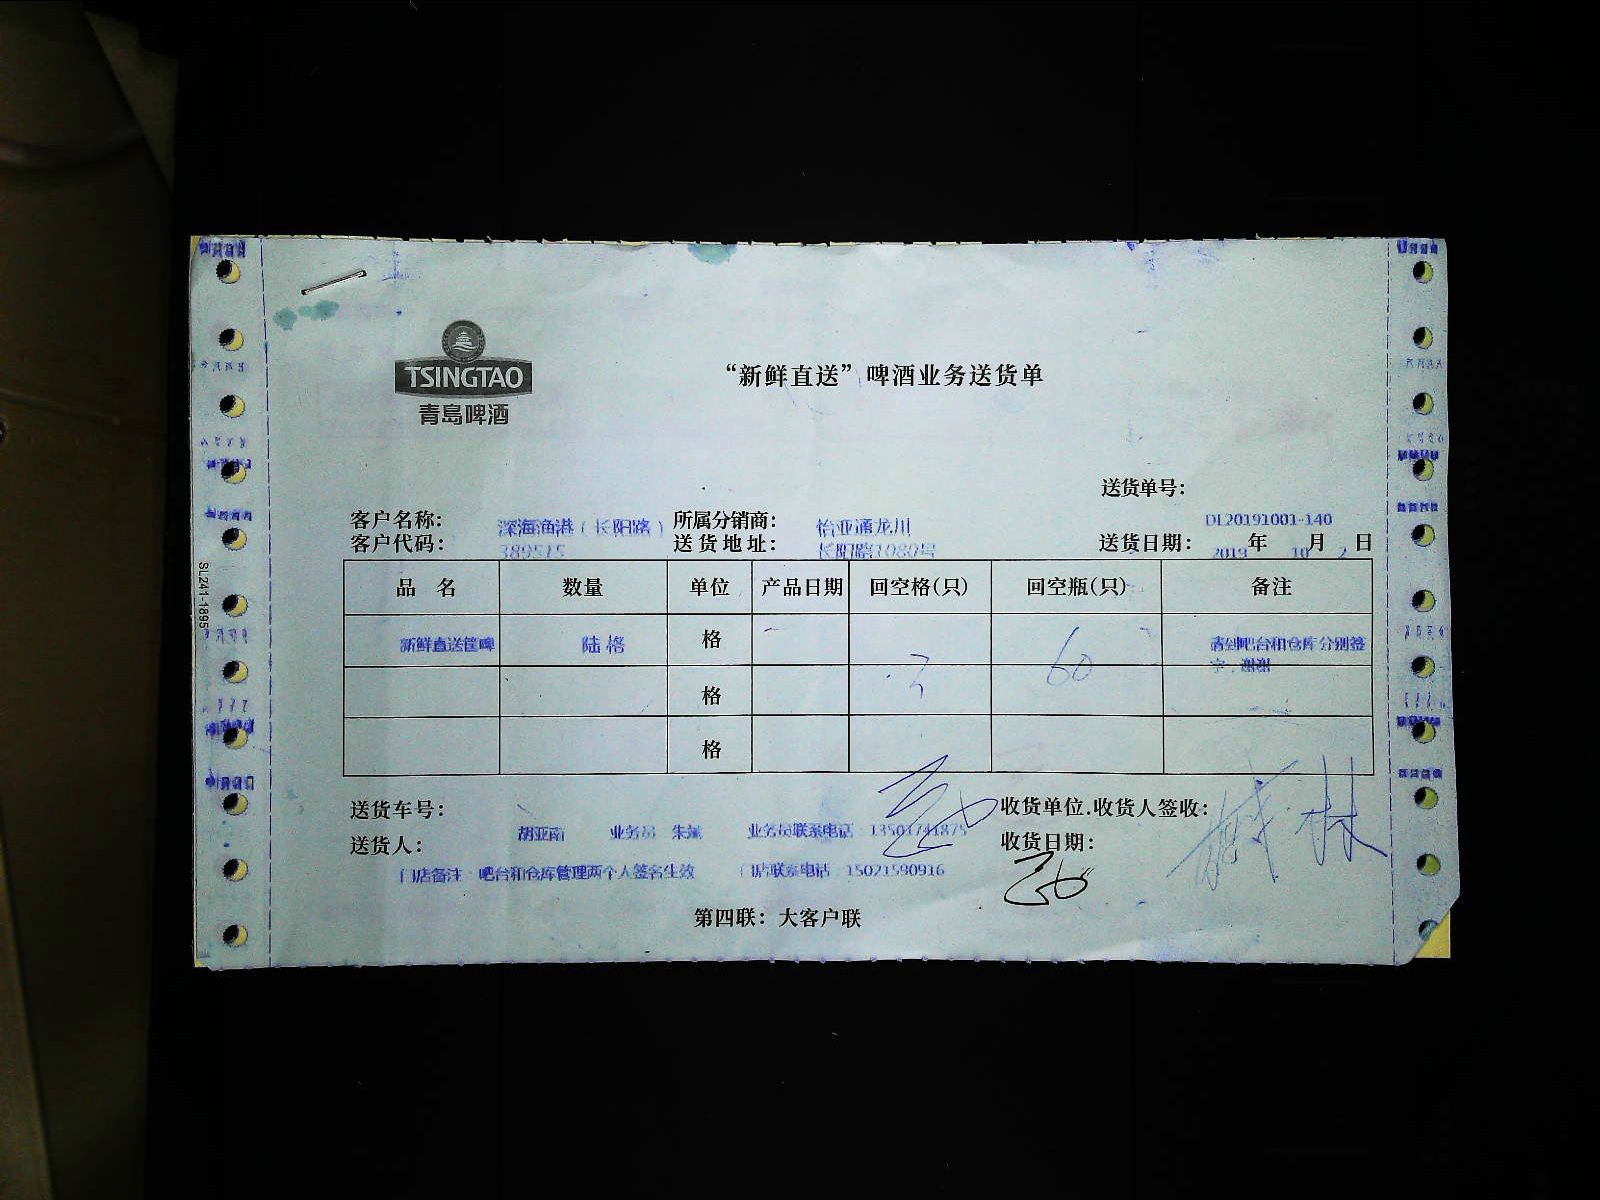 TSINGTAO
青島啤酒
“新鲜直送”啤酒业务送货单
送货单号：
DL20191001-140
客户名称： 深海渔港（长阳路） 所属分销商： 怡亚通龙川
客户代码： 389515 送货地址： 长阳路1080号 送货日期： 2019年 10月 2日
品 名 数量 单位 产品日期 回空格(只) 回空瓶(只) 备注
新鲜直送筐啤 陆格 格 60 请到吧台和仓库分别签
字，谢谢
格
格
送货车号： 收货单位.收货人签收：
送货人： 胡亚南 业务员 业务员联系电话 13501741875 收货日期：
门店备注 吧台和仓库管理两个人签名生效 门店联系电话 15021590916
第四联：大客户联
SL241-1895